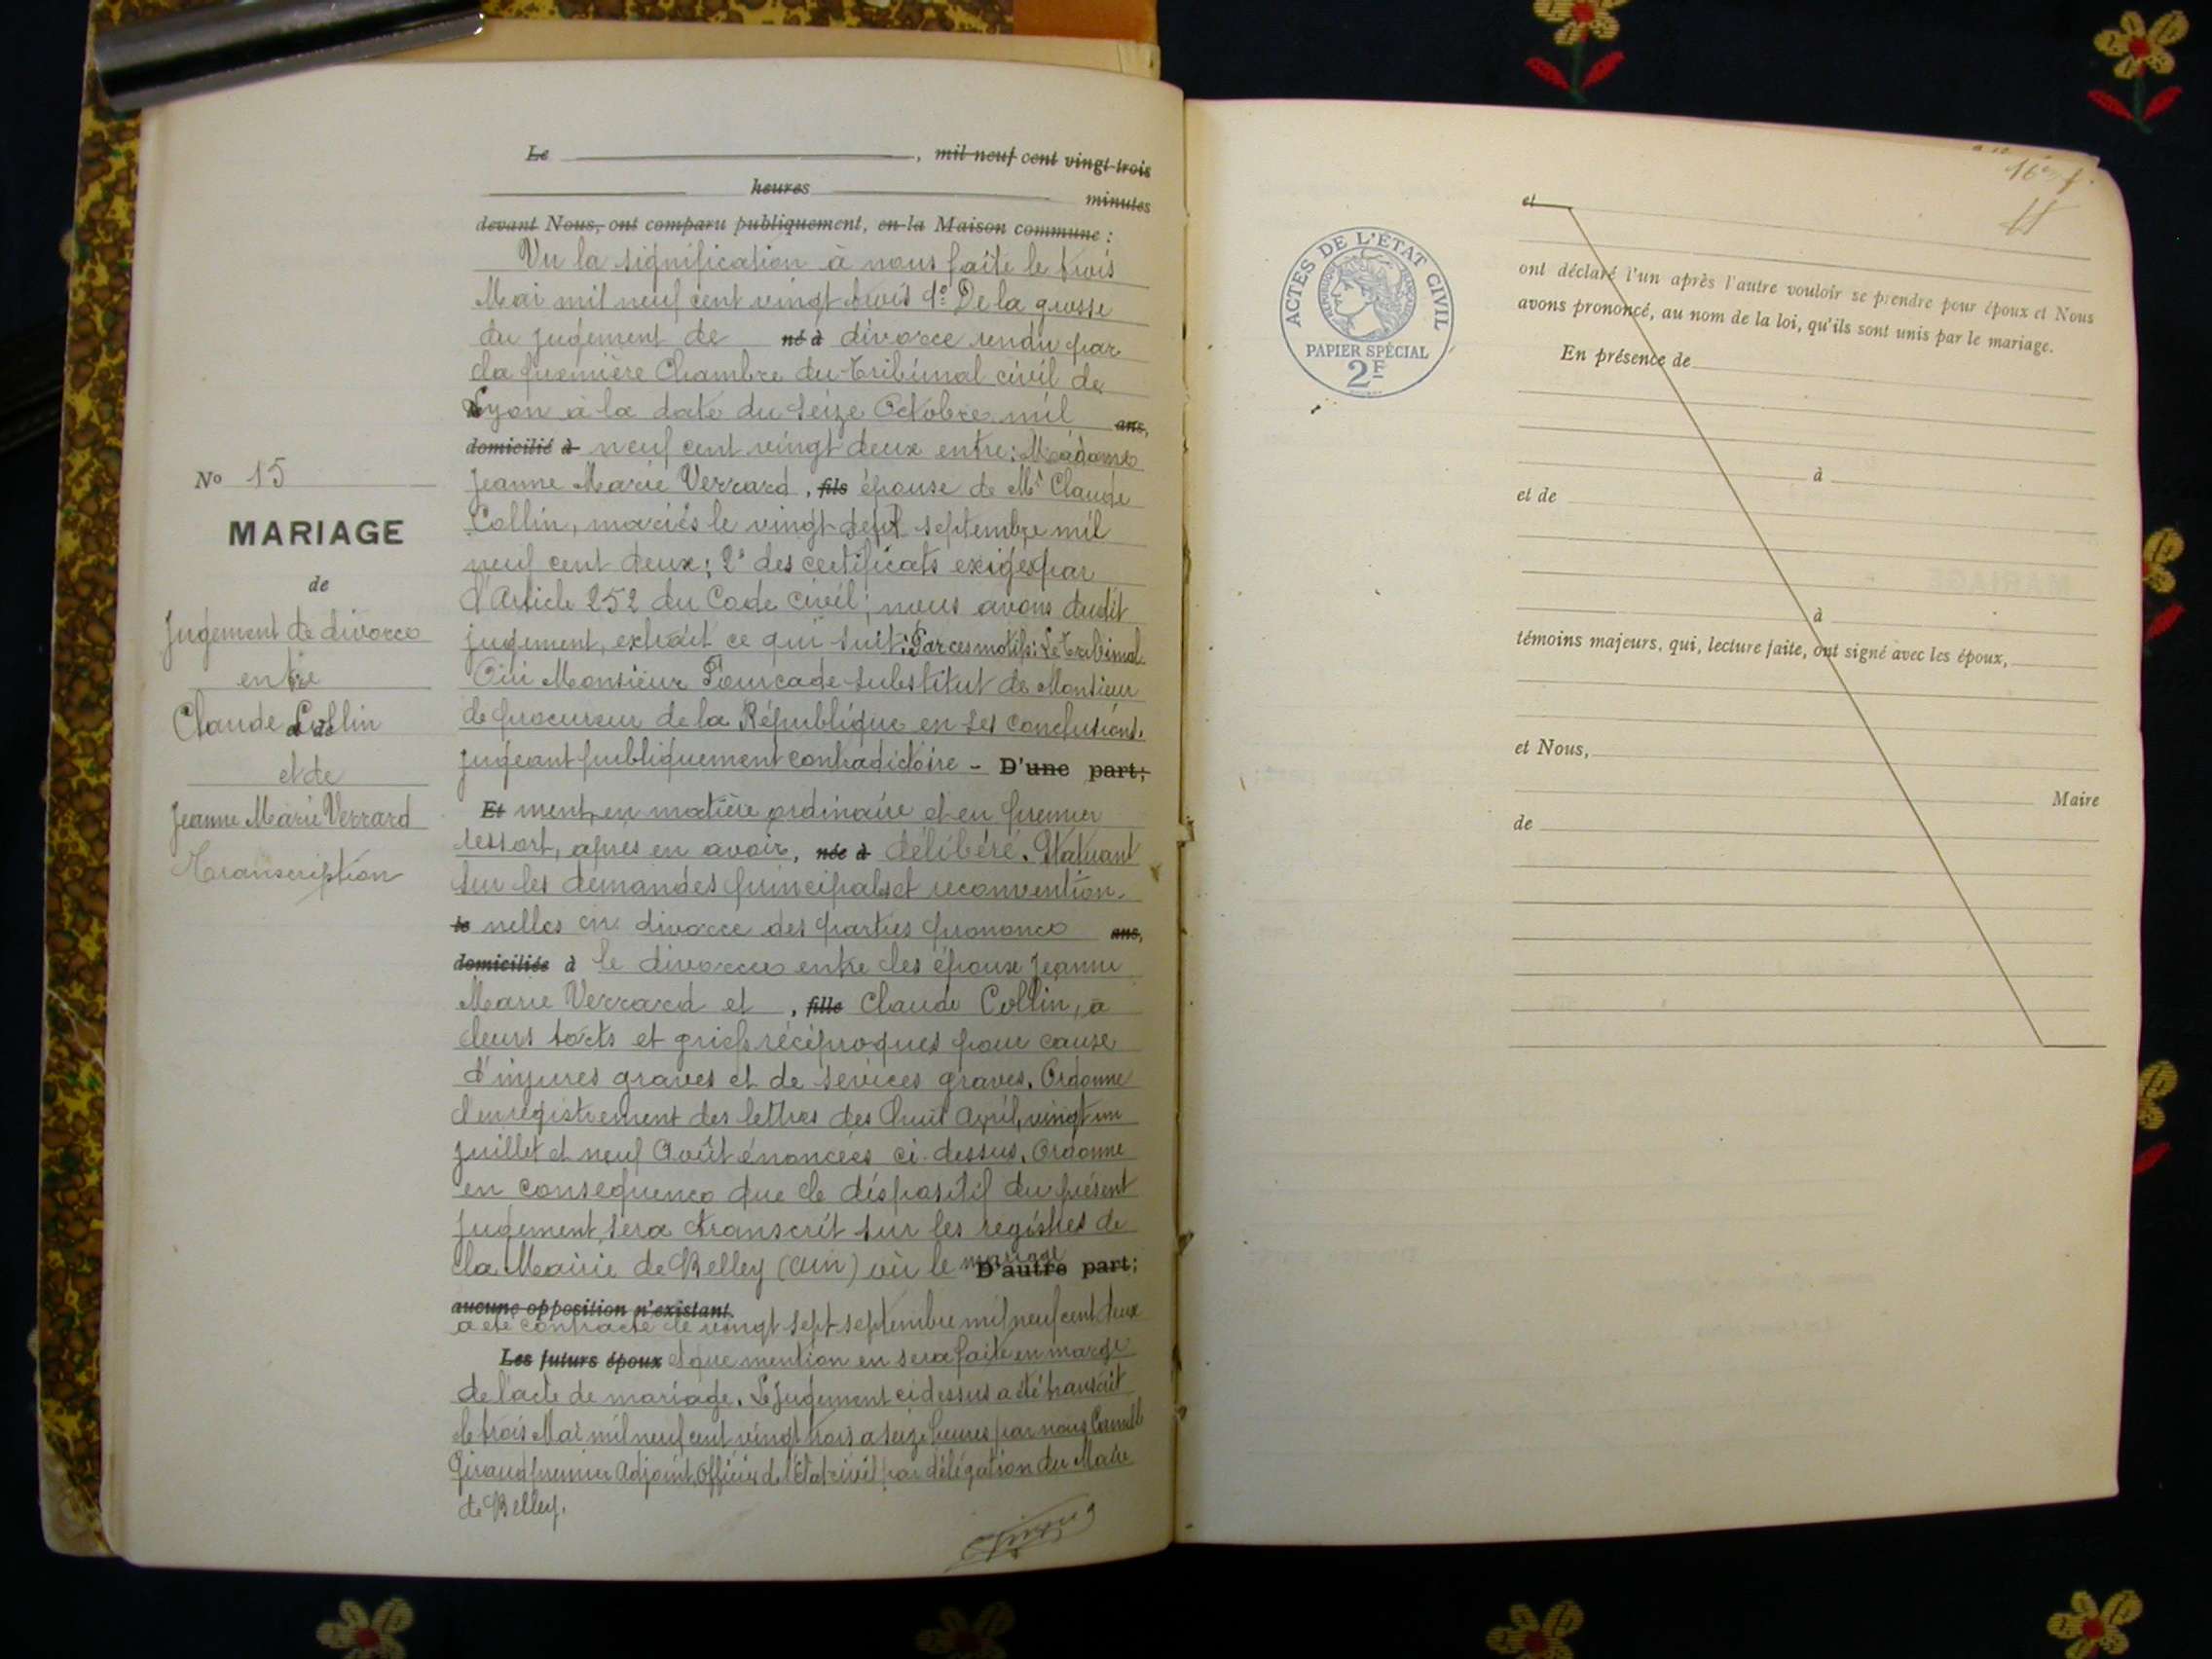 Le , mil neuf cent vingt-trois
heures minutes
devant Nous, ont comparu publiquement, en la Maison commune :
Vu la signification à nous faite le trois
Mai mil neuf cent vingt trois 1º De la grosse
du jugement de né à divorce rendu par
la première Chambre du Tribunal civil de
Lyon à la date du seize Octobre mil ans,
domicilié à neuf cent vingt deux entre : Madame
Jeanne Marie Verrard , fils épouse de Mr Claude
Collin, mariés le vingt sept septembre mil
neuf cent deux ; 2º des certificats exigés par
l'Article 252 du Code civil ; nous avons dudit
jugement, extrait ce qui suit : Par ces motifs : Le Tribunal
Oui Monsieur Fourcade substitut de Monsieur
le procureur de la République en ses conclusions.
jugeant publiquement contradictoire - D'une part ;
Et ment, en matière ordinaire et en premier
ressort, après en avoir , née à délibéré. Statuant
sur les demandes principales et reconvention-
le nelles en divorce des parties prononce ans,
domiciliée à le divorce entre les époux Jeanne
Marie Verrard et , fille Claude Collin, à
leurs torts et griefs réciproques pour cause
d'injures graves et de sévices graves. Ordonne
l'enregistrement des lettres des huit Avril, vingt un
juillet et neuf Août énoncées ci-dessus. Ordonne
en conséquence que le dispositif du présent
jugement sera transcrit sur les registres de
la Mairie de Belley (Ain) où le mariage D'autre part ;
aucune opposition n'existant.
a été contracté le vingt sept septembre mil neuf cent deux
Les futurs époux et que mention en sera faite en marge
de l'acte de mariage. Le jugement ci dessus a été transcrit
le trois Mai mil neuf cent vingt trois à seize heures par nous Camille
Giraud premier Adjoint, Officier de l'Etat civil par délégation du Maire
de Belley.
No 15
MARIAGE
de
Jugement de divorce
entre
Claude Collin
et de
et de
Jeanne Marie Verrard
Transcription
16
ACTES DE L'ÉTAT CIVIL
RÉPUBLIQUE FRANÇAISE
PAPIER SPÉCIAL
2F
et
ont déclaré l'un après l'autre vouloir se prendre pour époux et Nous
avons prononcé, au nom de la loi, qu'ils sont unis par le mariage.
En présence de
à
et de
à
témoins majeurs, qui, lecture faite, ont signé avec les époux,
et Nous,
Maire
de